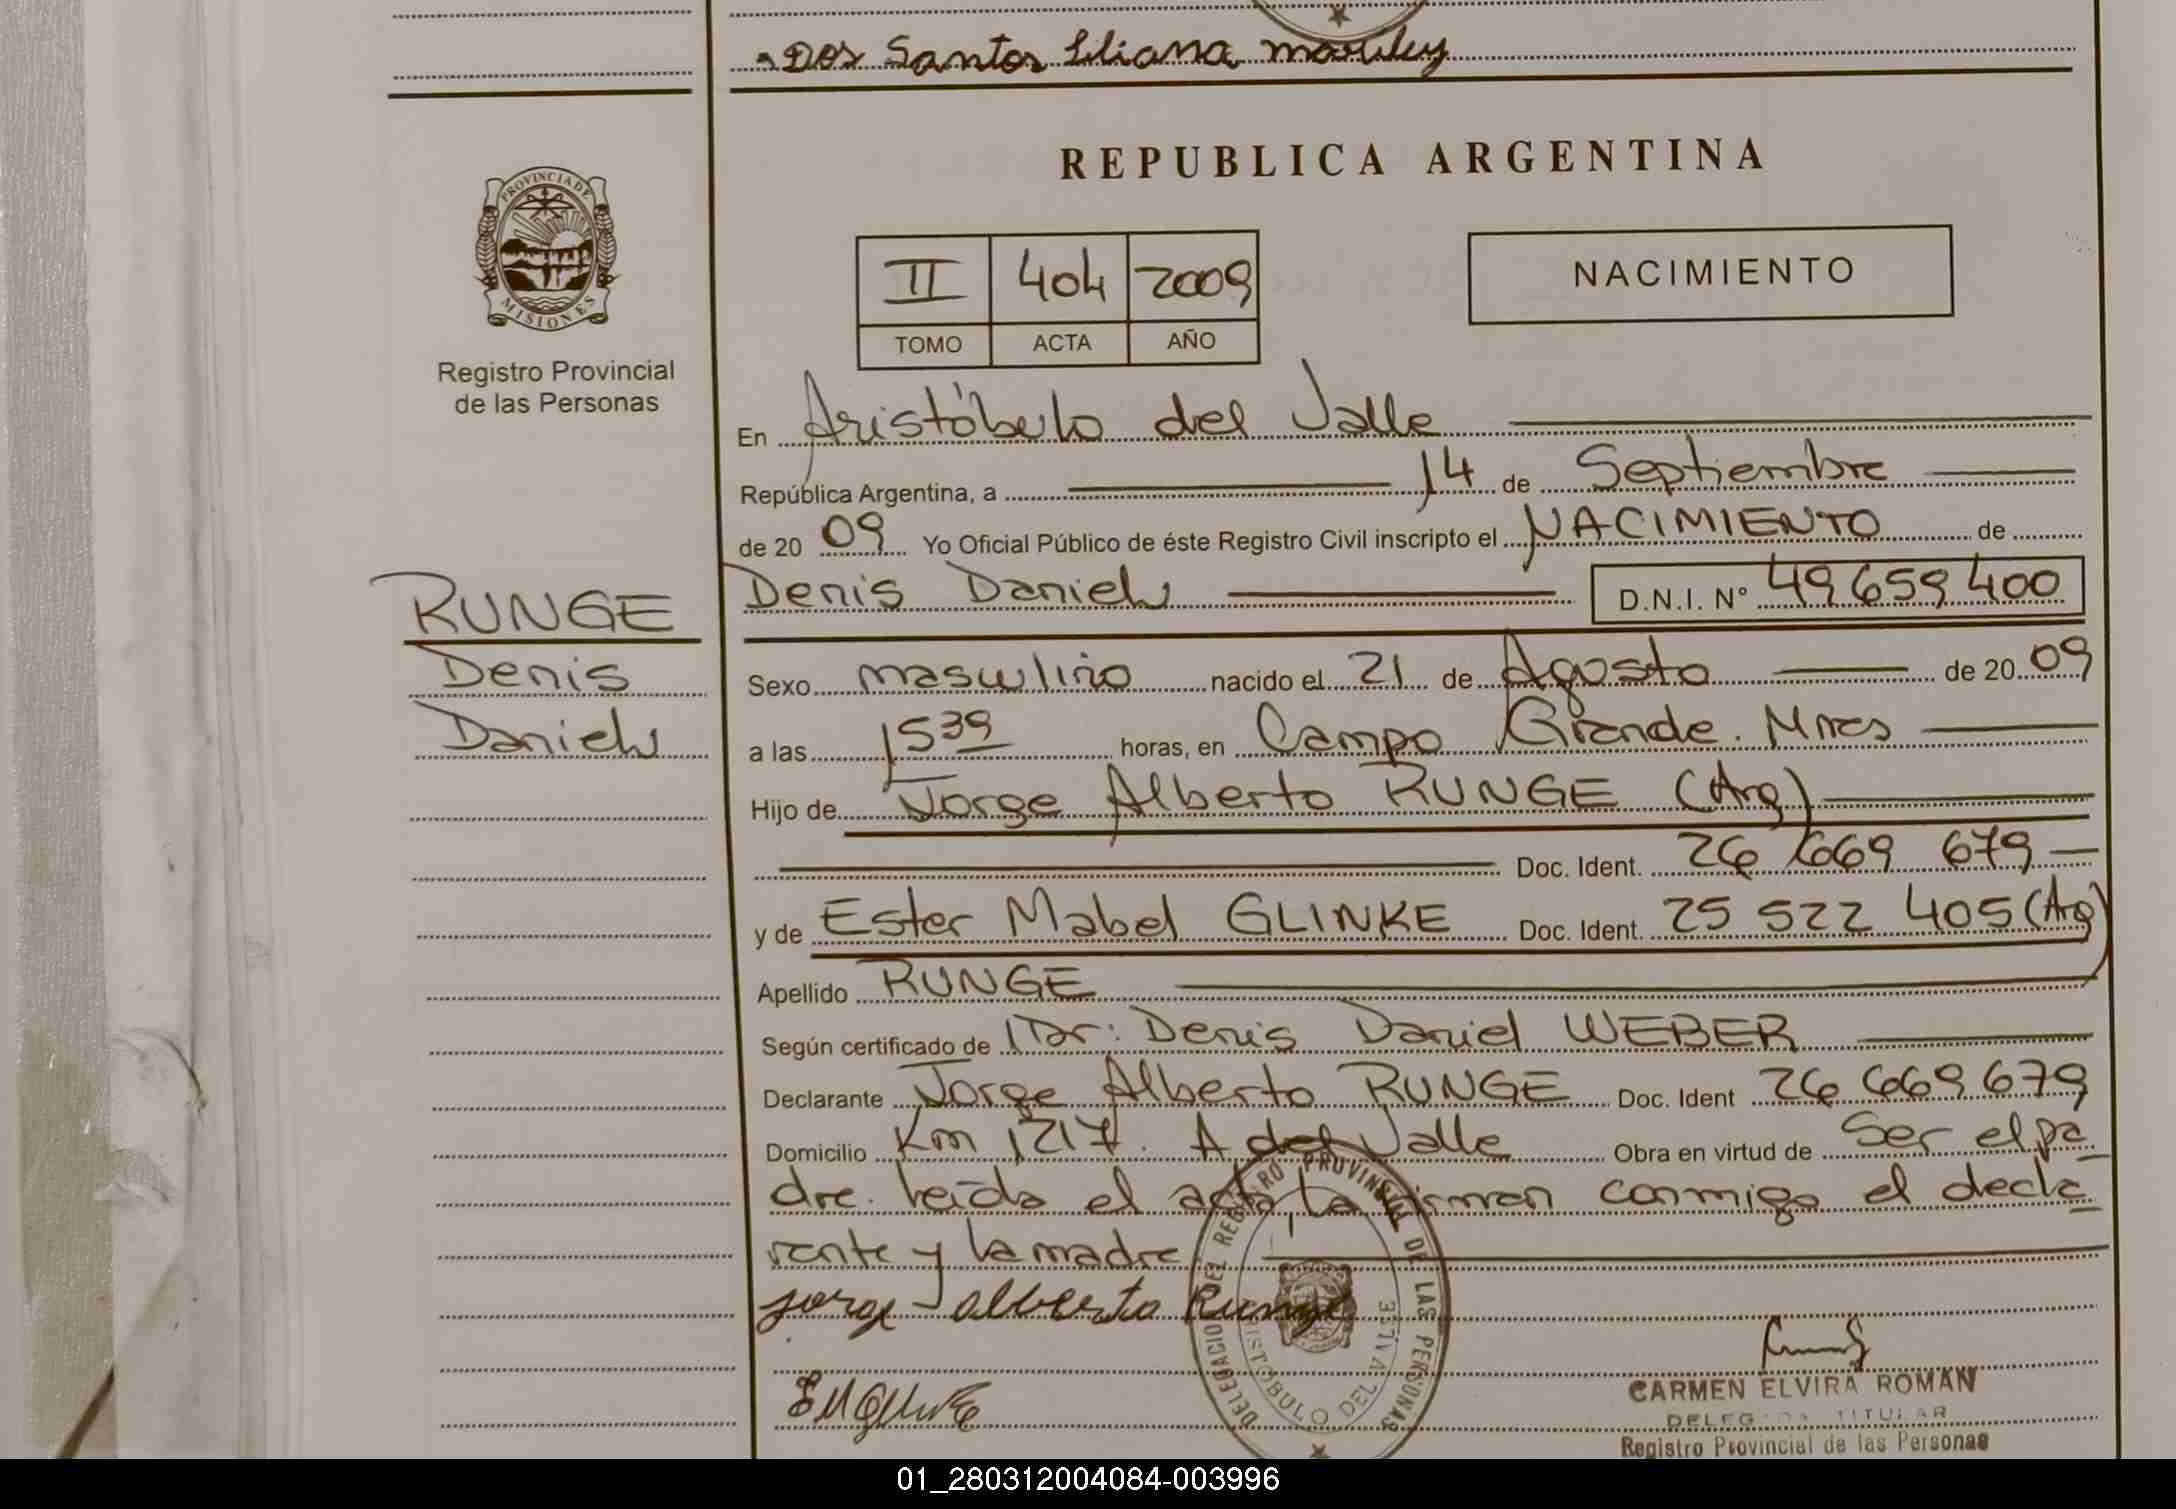 Dos Santos Liliana
REPUBLICA ARGENTINA
PROVINCIA DE
MISIONES
II 404 2009
TOMO ACTA AÑO
NACIMIENTO
Registro Provincial
de las Personas
En Aristóbulo del Valle
República Argentina, a 14 de Septiembre
de 20 09 Yo Oficial Público de éste Registro Civil inscripto el NACIMIENTO de
RUNGE
Denis Daniel D.N.I. N° 49659400
Denis
Daniel
Sexo masculino nacido el 21 de Agosto de 20 09
a las 1539 horas, en Campo Grande. Mnes
Hijo de Jorge Alberto RUNGE (Arg)
Doc. Ident. 26 669 679
y de Ester Mabel GLINKE Doc. Ident. 25 522 405 (Arg)
Apellido RUNGE
Según certificado de Dr: Denis Daniel WEBER
Declarante Jorge Alberto RUNGE Doc. Ident 26 669 679
Domicilio Km 1217. A del Valle Obra en virtud de Ser el pa
dre. Leída el acta, la firman conmigo el decla
rante y la madre
Jorge Alberto Runge
DELEGACION DEL REGISTRO PROVINCIAL DE LAS PERSONAS
ARISTOBULO DEL VALLE
CARMEN ELVIRA ROMAN
DELEGADA TITULAR
Registro Provincial de las Personas
01_280312004084-003996